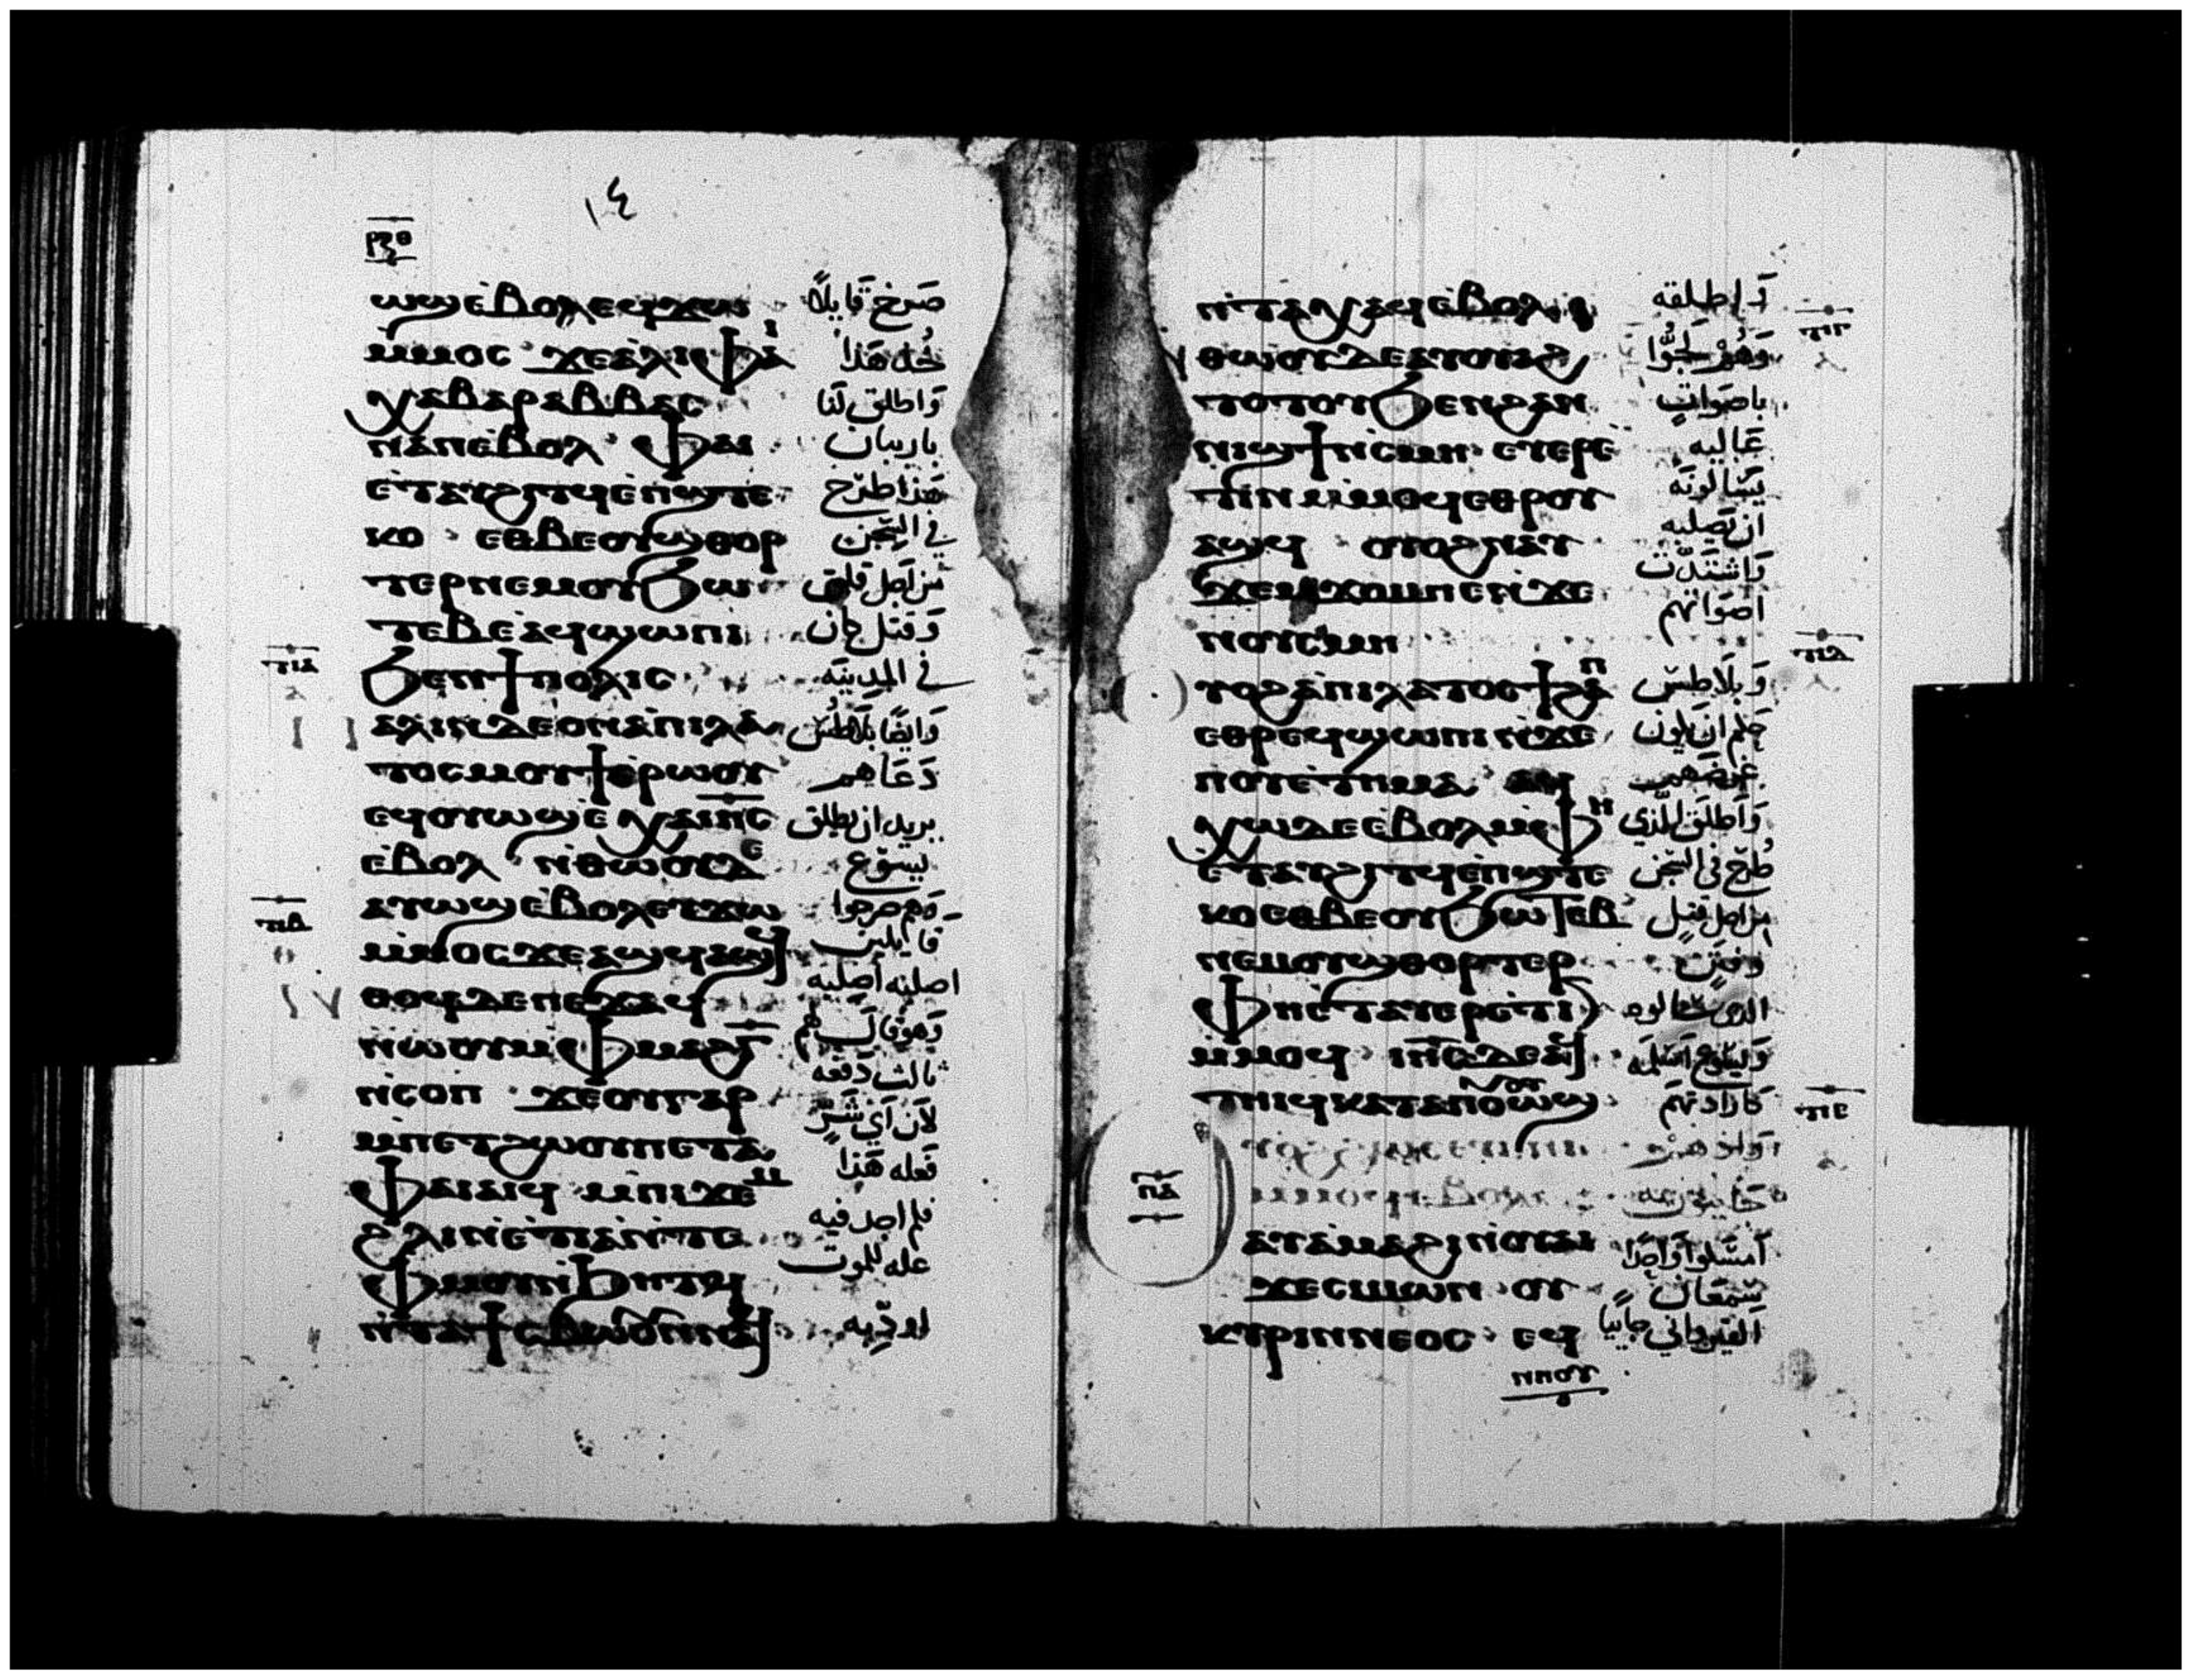 ١٤
ⲣⲝⲑ
ⲱϣⲉⲃⲟⲗⲉϥϫⲱ
صرخ قايلاً
ⲙⲙⲟⲥ ϫⲉⲁⲗⲓⲫⲁⲓ
خذ هذا
ⲭⲁⲃⲁⲣⲁⲃⲃⲁⲥ
واطلق لنا
ⲛⲁⲛⲉⲃⲟⲗ ⲫⲁⲓ
باربان
ⲉⲧⲁⲩϩⲓⲧϥⲉⲡϣⲧⲉ
هذا طرح
ⲕⲟ ⲉⲑⲃⲉⲟⲩϣⲑⲟⲣ
في السجن
ⲧⲉⲣⲛⲉⲙⲟⲩϧⲱ
من اجل قلق
ⲧⲉⲃⲉⲁϥϣⲱⲡⲓ
وقتل كان
ϧⲉⲛϯⲡⲟⲗⲓⲥ
في المدينه
ⲡⲓⲁ
ⲡⲁⲗⲓⲛⲇⲉⲟⲛⲁⲡⲓⲗⲁ
وايضا بلاطس
ⲧⲟⲥⲙⲟⲩϯⲉⲣⲱⲟⲩ
دعاهم
ⲉϥⲟⲩⲱϣⲉⲭⲁⲓⲏⲥ
يريد ان يطلق
ⲉⲃⲟⲗ ⲛⲑⲱⲟⲩⲇⲉ
يسوع
ⲁⲩⲱϣⲉⲃⲟⲗⲉⲩϫⲱ
وهم صرخوا
ⲙⲙⲟⲥϫⲉⲁϣϥⲁϣϥ
قايلين
اصلبه اصلبه
ⲛⲑⲟϥⲇⲉⲡⲉϫⲁϥ
وهو قال لهم
ⲛⲱⲟⲩⲙⲫⲙⲁϩⲅ
ثالث دفعه
ⲛⲥⲟⲡ ϫⲉⲟⲩⲅⲁⲣ
لان اي شر
ⲙⲡⲉⲧϩⲱⲟⲩⲡⲉⲧⲁ
فعله هذا
ⲫⲁⲓⲁⲓϥ ⲙⲡⲓϫⲉⲙ
فلم اجد فيه
ϩⲗⲓⲛⲉⲧⲓⲁⲛⲧⲉ
عله للموت
ⲫⲙⲟⲩⲛϧⲏⲧϥ
ⲛⲧⲁϯⲥⲃⲱⲟⲩⲛⲛⲁϥ
اودبه
ⲛⲧⲁⲭⲁϥⲉⲃⲟⲗ
واطلقه
ⲛⲑⲱⲟⲩⲇⲉⲁⲩⲟⲩⲁϩ
وهم لجوا
ⲧⲟⲧⲟⲩϧⲉⲛϩⲁⲛ
باصوات
ⲛⲓϣϯⲛⲥⲙⲏ ⲉⲩⲉⲣⲉ
عاليه
ⲧⲓⲛⲙⲙⲟϥⲉⲑⲣⲟⲩ
يسالونه
ⲁϣϥ ⲟⲩⲟϩⲛⲁⲩ
ان يصلبه
ϫⲉⲙϫⲟⲙⲡⲉⲛϫⲉ
واشتدت
ⲛⲟⲩⲥⲙⲏ
اصواتهم
ⲟⲩⲟϩⲁⲡⲓⲗⲁⲧⲟⲥϯϩⲁⲡ
وبلاطس
ⲉⲑⲣⲉϥϣⲱⲡⲓⲛϫⲉ
حكم ان يكون
ⲡⲟⲩⲉⲧⲏⲙⲁ ⲁϥ
غرضهم
ⲭⲱⲇⲉⲉⲃⲟⲗⲙⲫⲏ
واطلق للذي
ⲉⲧⲁⲩϩⲓⲧϥⲉⲡϣⲧⲉ
طرح في السجن
ⲕⲟⲉⲑⲃⲉⲟⲩϧⲱⲧⲉⲃ
من اجل قتل
ⲛⲉⲙⲟⲩϣⲑⲟⲣⲧⲉⲣ
وفتن
ⲫⲏⲉⲧⲁⲩⲉⲣⲉⲧⲓⲛ
الذي سالوه
ⲙⲙⲟϥ ⲓⲏⲥⲇⲉⲁϥ
ويسوع اسلمه
ⲧⲏⲓϥⲕⲁⲧⲁⲡⲟⲩⲟⲩⲱϣ
كارادتهم
ⲡⲇ
ⲁⲩⲁⲙⲁϩⲓⲛⲟⲩⲁⲓ
امسكوا واحدا
ϫⲉⲥⲓⲙⲱⲛ ⲟⲩ
سمعان
ⲕⲩⲣⲓⲛⲛⲉⲟⲥ ⲉϥ
القيرواني جاييا
ⲛⲛⲟⲩ